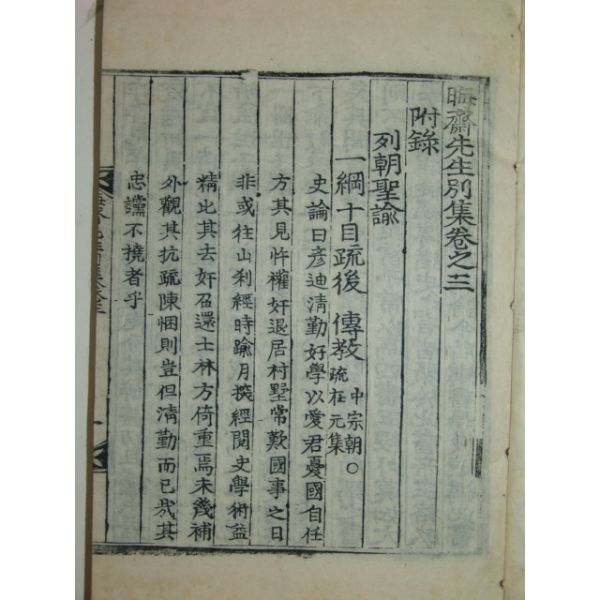 晦齋先生別集卷之三
附錄
列朝聖諭
一綱十目疏後 傳教 中宗朝○疏在元集
史論曰彦迪清勤好學以愛君憂國自任
方其見忤權奸退居村墅常歎國事之日
非或往山利經時踰月探經閱史學術益
精比其去奸召還士林方倚重焉未幾補
外觀其抗疏陳悃則豈但清勤而已哉其
忠讜不撓者乎